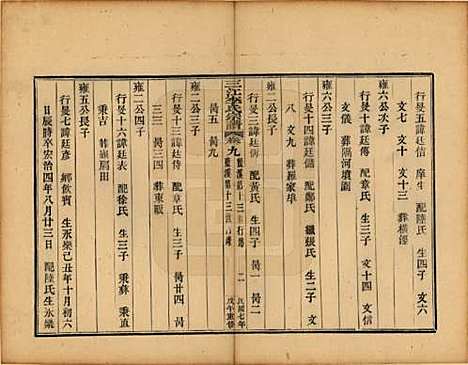 行旻五諱廷信 庠生 配陸氏 生四子 文六
文七 文十 文十三 葬橫漻
雍六公次子
行旻六諱廷傳 配章氏 生三子 文十四 文信
文儀 葬隔河墳園
雍二公長子
行旻十四諱廷儲 配鄭氏 繼張氏 生二子 文
八 文九 葬羅家埠
行旻三諱廷 配黃氏 生四子 昺一 昺二
昺五 昺九
三江李氏宗譜 卷九 二 民國七年戊午重修
雍二公三子
行旻十三諱廷侍 配 氏 生三子 昺廿四 昺
三三 昺三四 葬東畈
雍四公長子
行旻十六諱廷表 配徐氏 生三子 秉彝 秉直
秉吉 葬 扇田
雍五公長子
行旻七諱廷彥 鄉飲賓 生永樂己丑年十月初六
日辰時卒宏治四年八月廿三日 配陸氏生永樂